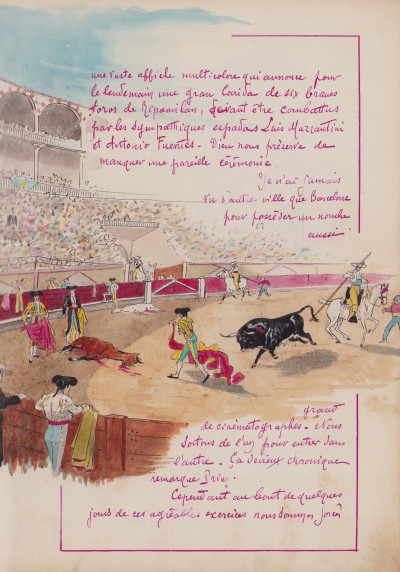 une vaste affiche multicolore qui annonce pour
le lendemain une gran Corida de six braves
toros de Ripamilan, devant être combattus
par les sympathiques espadas Luis Mazzantini
et Antonio Fuentes. Dieu nous préserve de
manquer une pareille cérémonie
Je n'ai jamais
vu d'autre ville que Barcelone
pour posséder un nombre
aussi
grand
de cinématographes. Nous
sortons de l'un pour entrer dans
l'autre. Ça devient chronique
remarque
Cependant au bout de quelques
jours de ces agréables exercices nous sommes